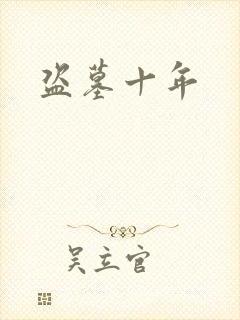 盗墓十年
吴立官